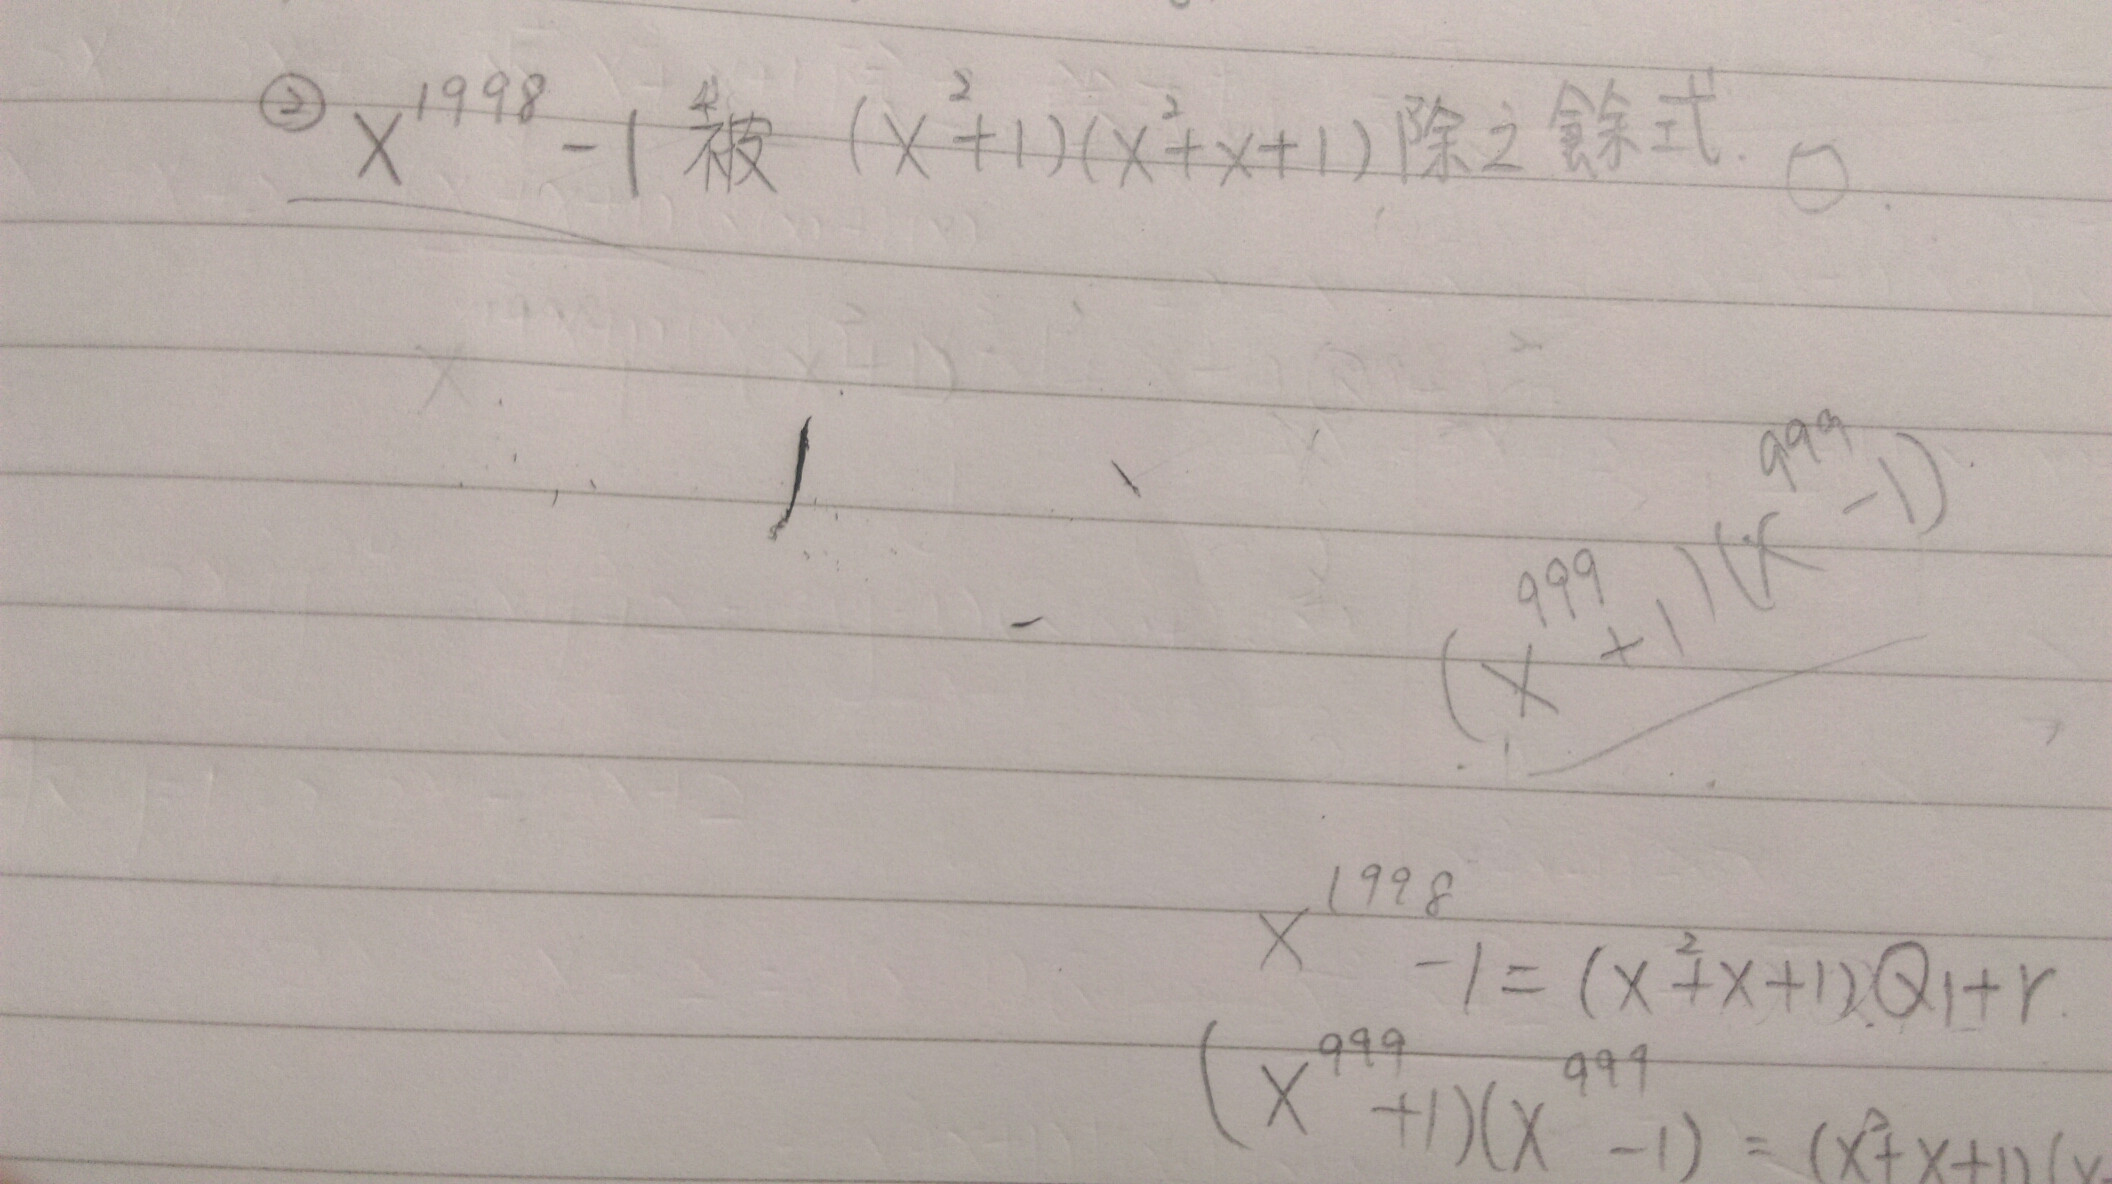 ② x¹⁹⁹⁸-1 被 (x²+1)(x²+x+1) 除之餘式.
(x⁹⁹⁹+1)(x⁹⁹⁹-1)
x¹⁹⁹⁸-1=(x²+x+1)Q₁+r.
(x⁹⁹⁹+1)(x⁹⁹⁹-1)=(x²+x+1)(x-